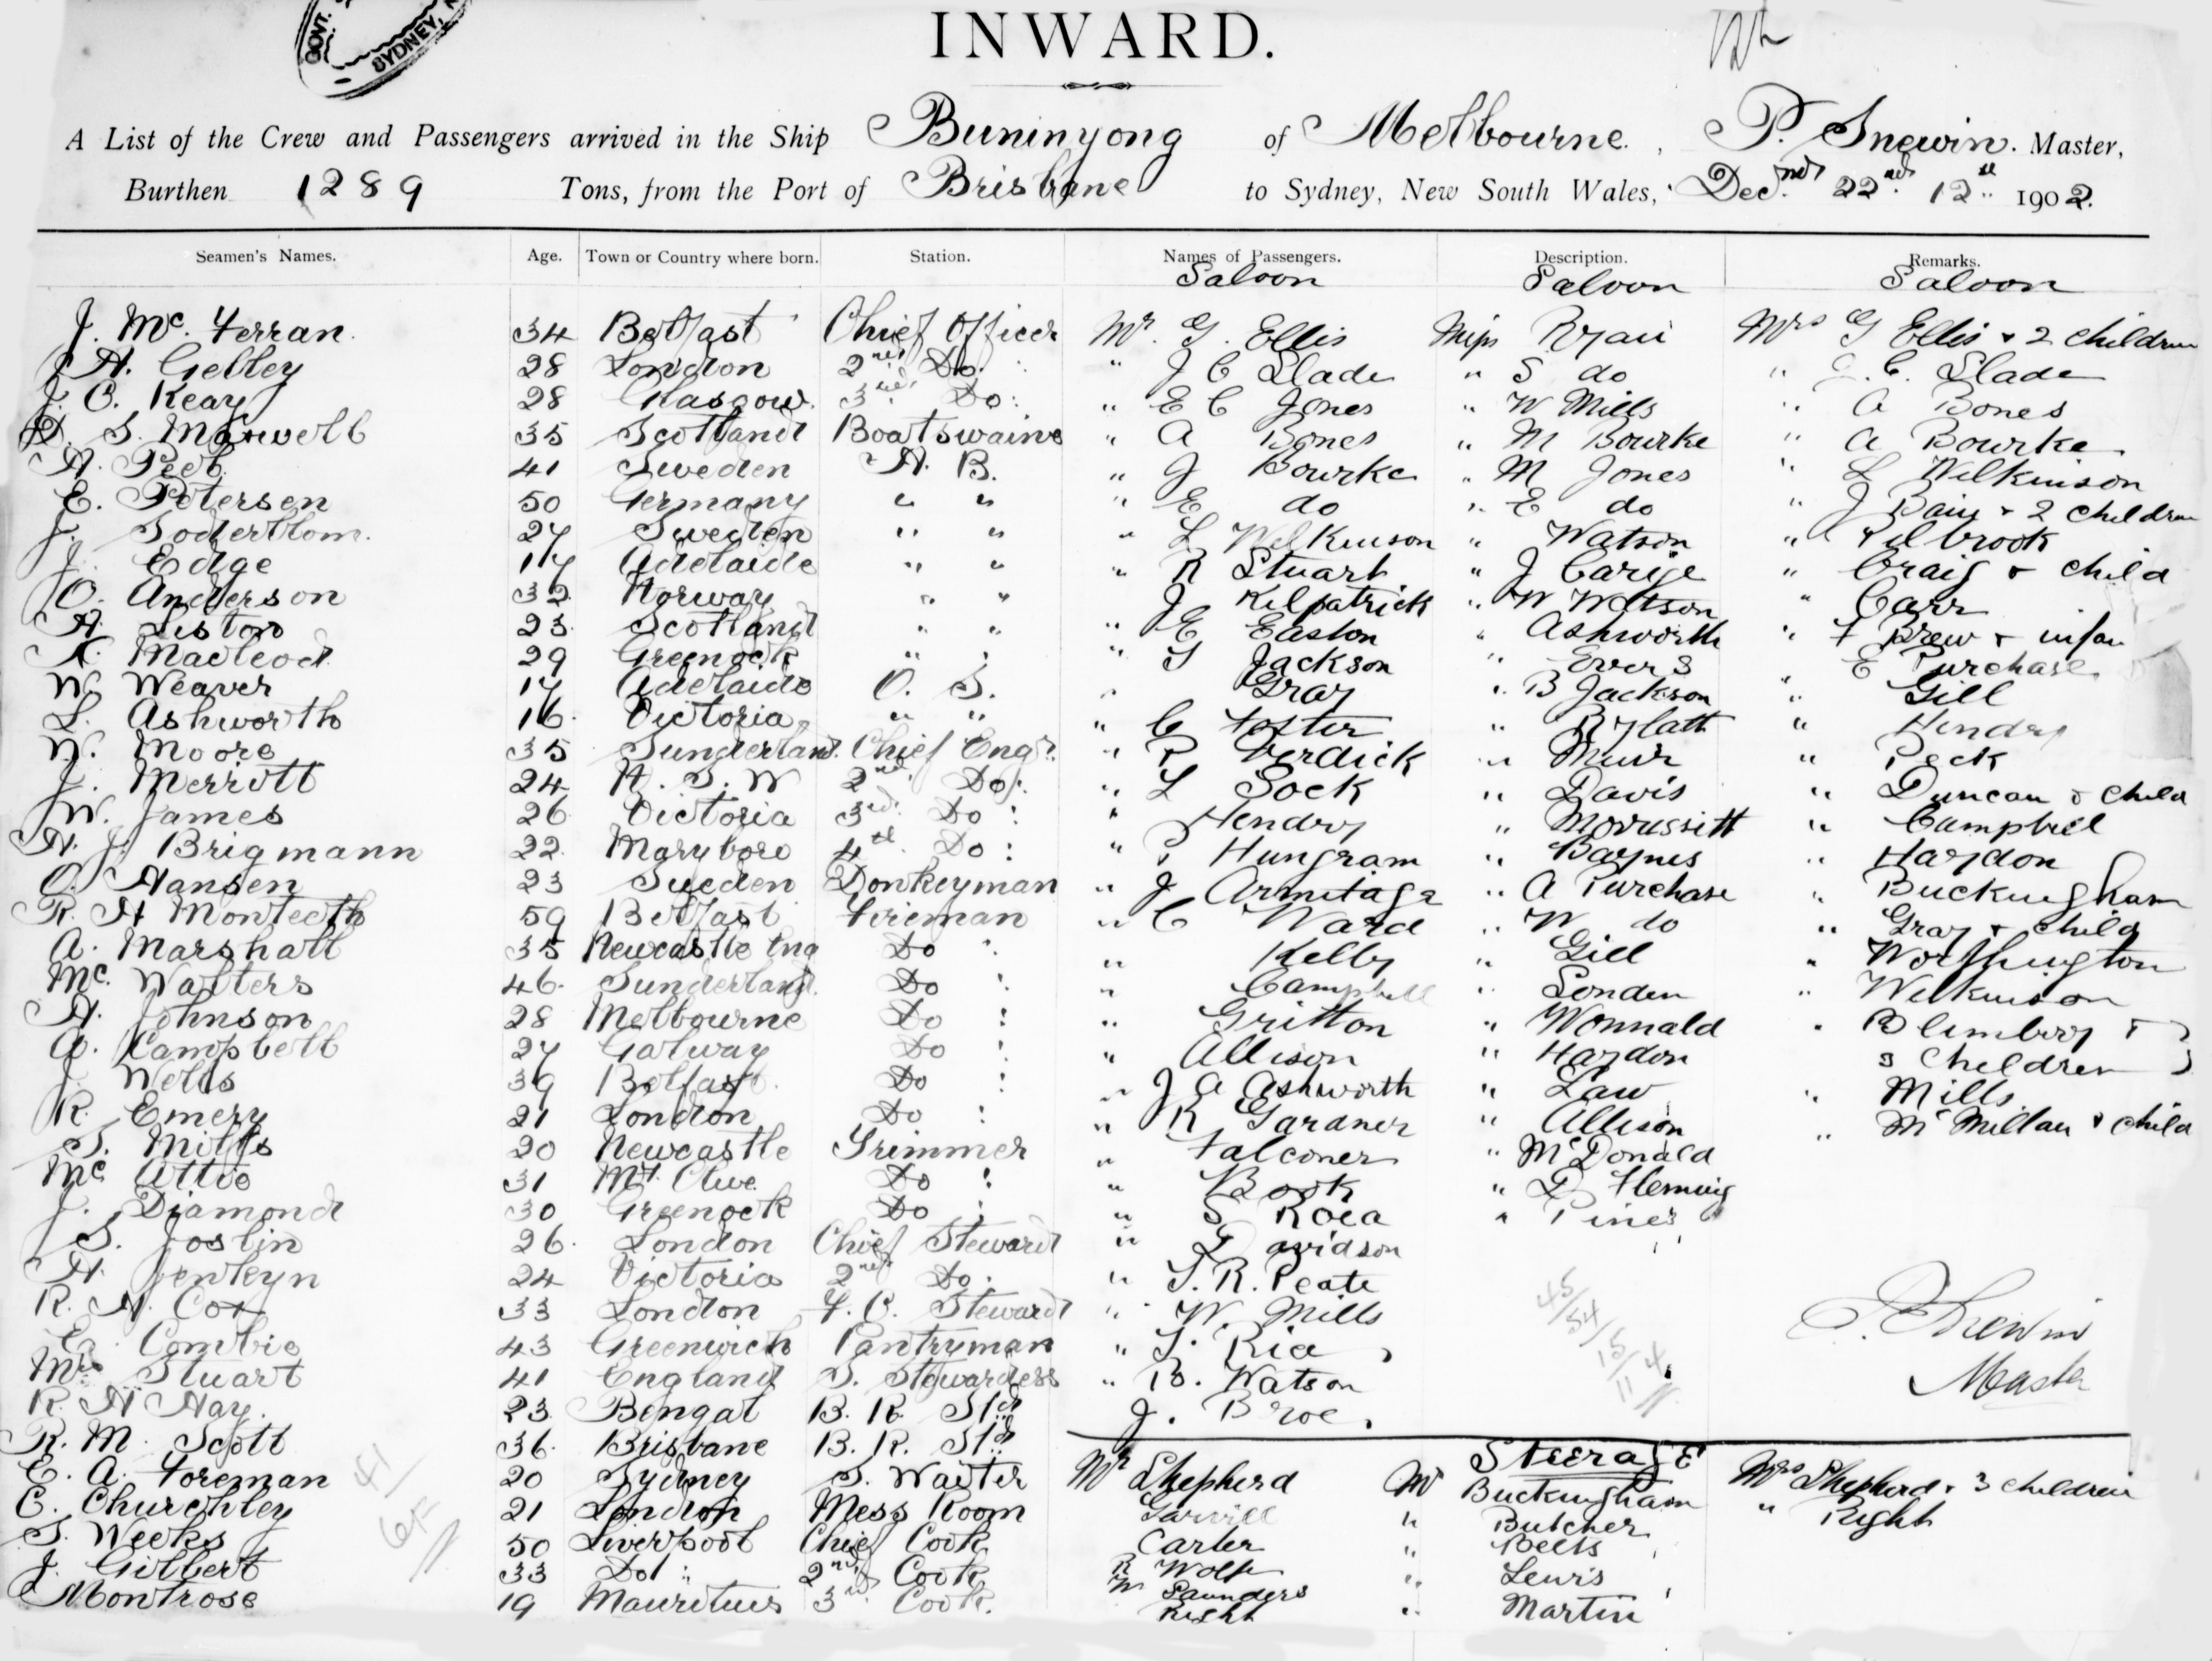 GOVT. SYDNEY, N
INWARD.
A List of the Crew and Passengers arrived in the Ship Buninyong of Melbourne, P. Snewin. Master,
Burthen 1289 Tons, from the Port of Brisbane to Sydney, New South Wales, Decr. 22nd 12th 1902.
Seamen's Names. Age. Town or Country where born. Station. Names of Passengers. Description. Remarks.
Saloon Saloon Saloon
J. Mc. Ferran. 34 Belfast Chief Officer Mr. G. Ellis Miss Ryan Mrs G Ellis + 2 children
A. Gelley 28 London 2nd Do. " J C Slade " S do " J. C. Slade
J. C. Keay 28 Glasgow. 3rd Do: " E C Jones " W Mills " A Bones
D. S. Maxwell 35 Scotland Boatswain " A Bones " M Bourke " A Bourke
A. Peel. 41 Sweden A. B. " J Bourke " M Jones " L Wilkinson
E. Petersen 50 Germany " " " E do " E do " J Bain + 2 children
J. Soderblom. 27 Sweden " " " L Wilkinson " Watson " Kilbrook
J. Edge 17 Adelaide " " " R Stuart " J Carige " Craig + child
O. Anderson 32 Norway " " " J Kilpatrick " W Watson " Carr
A. Liston 23 Scotland " " " E Easton " Ashworth " F Brew + infan
K. Macleod 29 Greenock " " " S Jackson " Evers " E Purchase
W. Weaver 17 Adelaide O. S. " Gray " B Jackson " Gill
L. Ashworth 16. Victoria " " " C Foster " Rylatt " Hendry
W. Moore 35 Sunderland. Chief Engr. " R Verdick " Muir " Peck
J. Merrott 24 N. S. W 2nd Do: " L Sock " Davis " Duncan & child
W. James 26 Victoria 3rd. Do: " Hendry " Morussitt " Campbell
A. J. Brigmann 22. Maryboro 4th. Do: " P Hungram " Baynes " Haydon
O. Hansen 23 Sueden Donkeyman " J Armitage " A Purchase " Buckingham
R. H Monteeth 59 Belfast Fireman " C Ward " W do " Gray + child
A. Marshall 35 Newcastle Eng Do " Kelly " Gill " Worthington
Mc. Walters 46. Sunderland. Do : " Campbell " Londen " Wilkinson
A. Johnson 28 Melbourne Do : " Gritton " Wonnald " Blimboy +
A. Campbell 27 Galway Do : " Allison " Haydon 3 children
J. Wells 39 Belfast. Do : " J A Ashworth " Law " Mills.
R. Emery 21 London Do : " R Gardner " Allison " McMillan & child
S. Mills 20 Newcastle Trimmer " Falconer " McDonald
Mc Attie 31 Mt. Clive. Do : " Book " D Fleming
J. Diamond 30 Greenock Do : " S Roea " Pines
S. Joslin 26. London Chief Steward " Davidson
A. Jenkyn 24 Victoria 2nd Do. " S. R. Peate
R. H. Cox 33 London F. C. Steward " W. Mills
E. Combie 43 Greenwich Pantryman " T. Ria
Mrs Stuart 41 England S. Stewardess " B. Watson
R. H Hay. 23. Bengal B. R. Std J. Broe.
P. Snewin
Master
45/54/15/11/4
R. M. Scott 36. Brisbane B. R. Std
Steerage
E. A. Foreman 20 Sydney S. Waiter Mr Shepherd Mr Buckingham Mrs Shepherd + 3 children
E. Churchley 21 London Mess Room Garvill " Butcher " Right
S. Weeks 50 Liverpool Chief Cook Carter " Beets
J. Gilbert 33 Do: 2nd Cook R Wolfe " Lewis
Montrose 19 Mauritius 3rd Cook. W Saunders " Martin
Right
41